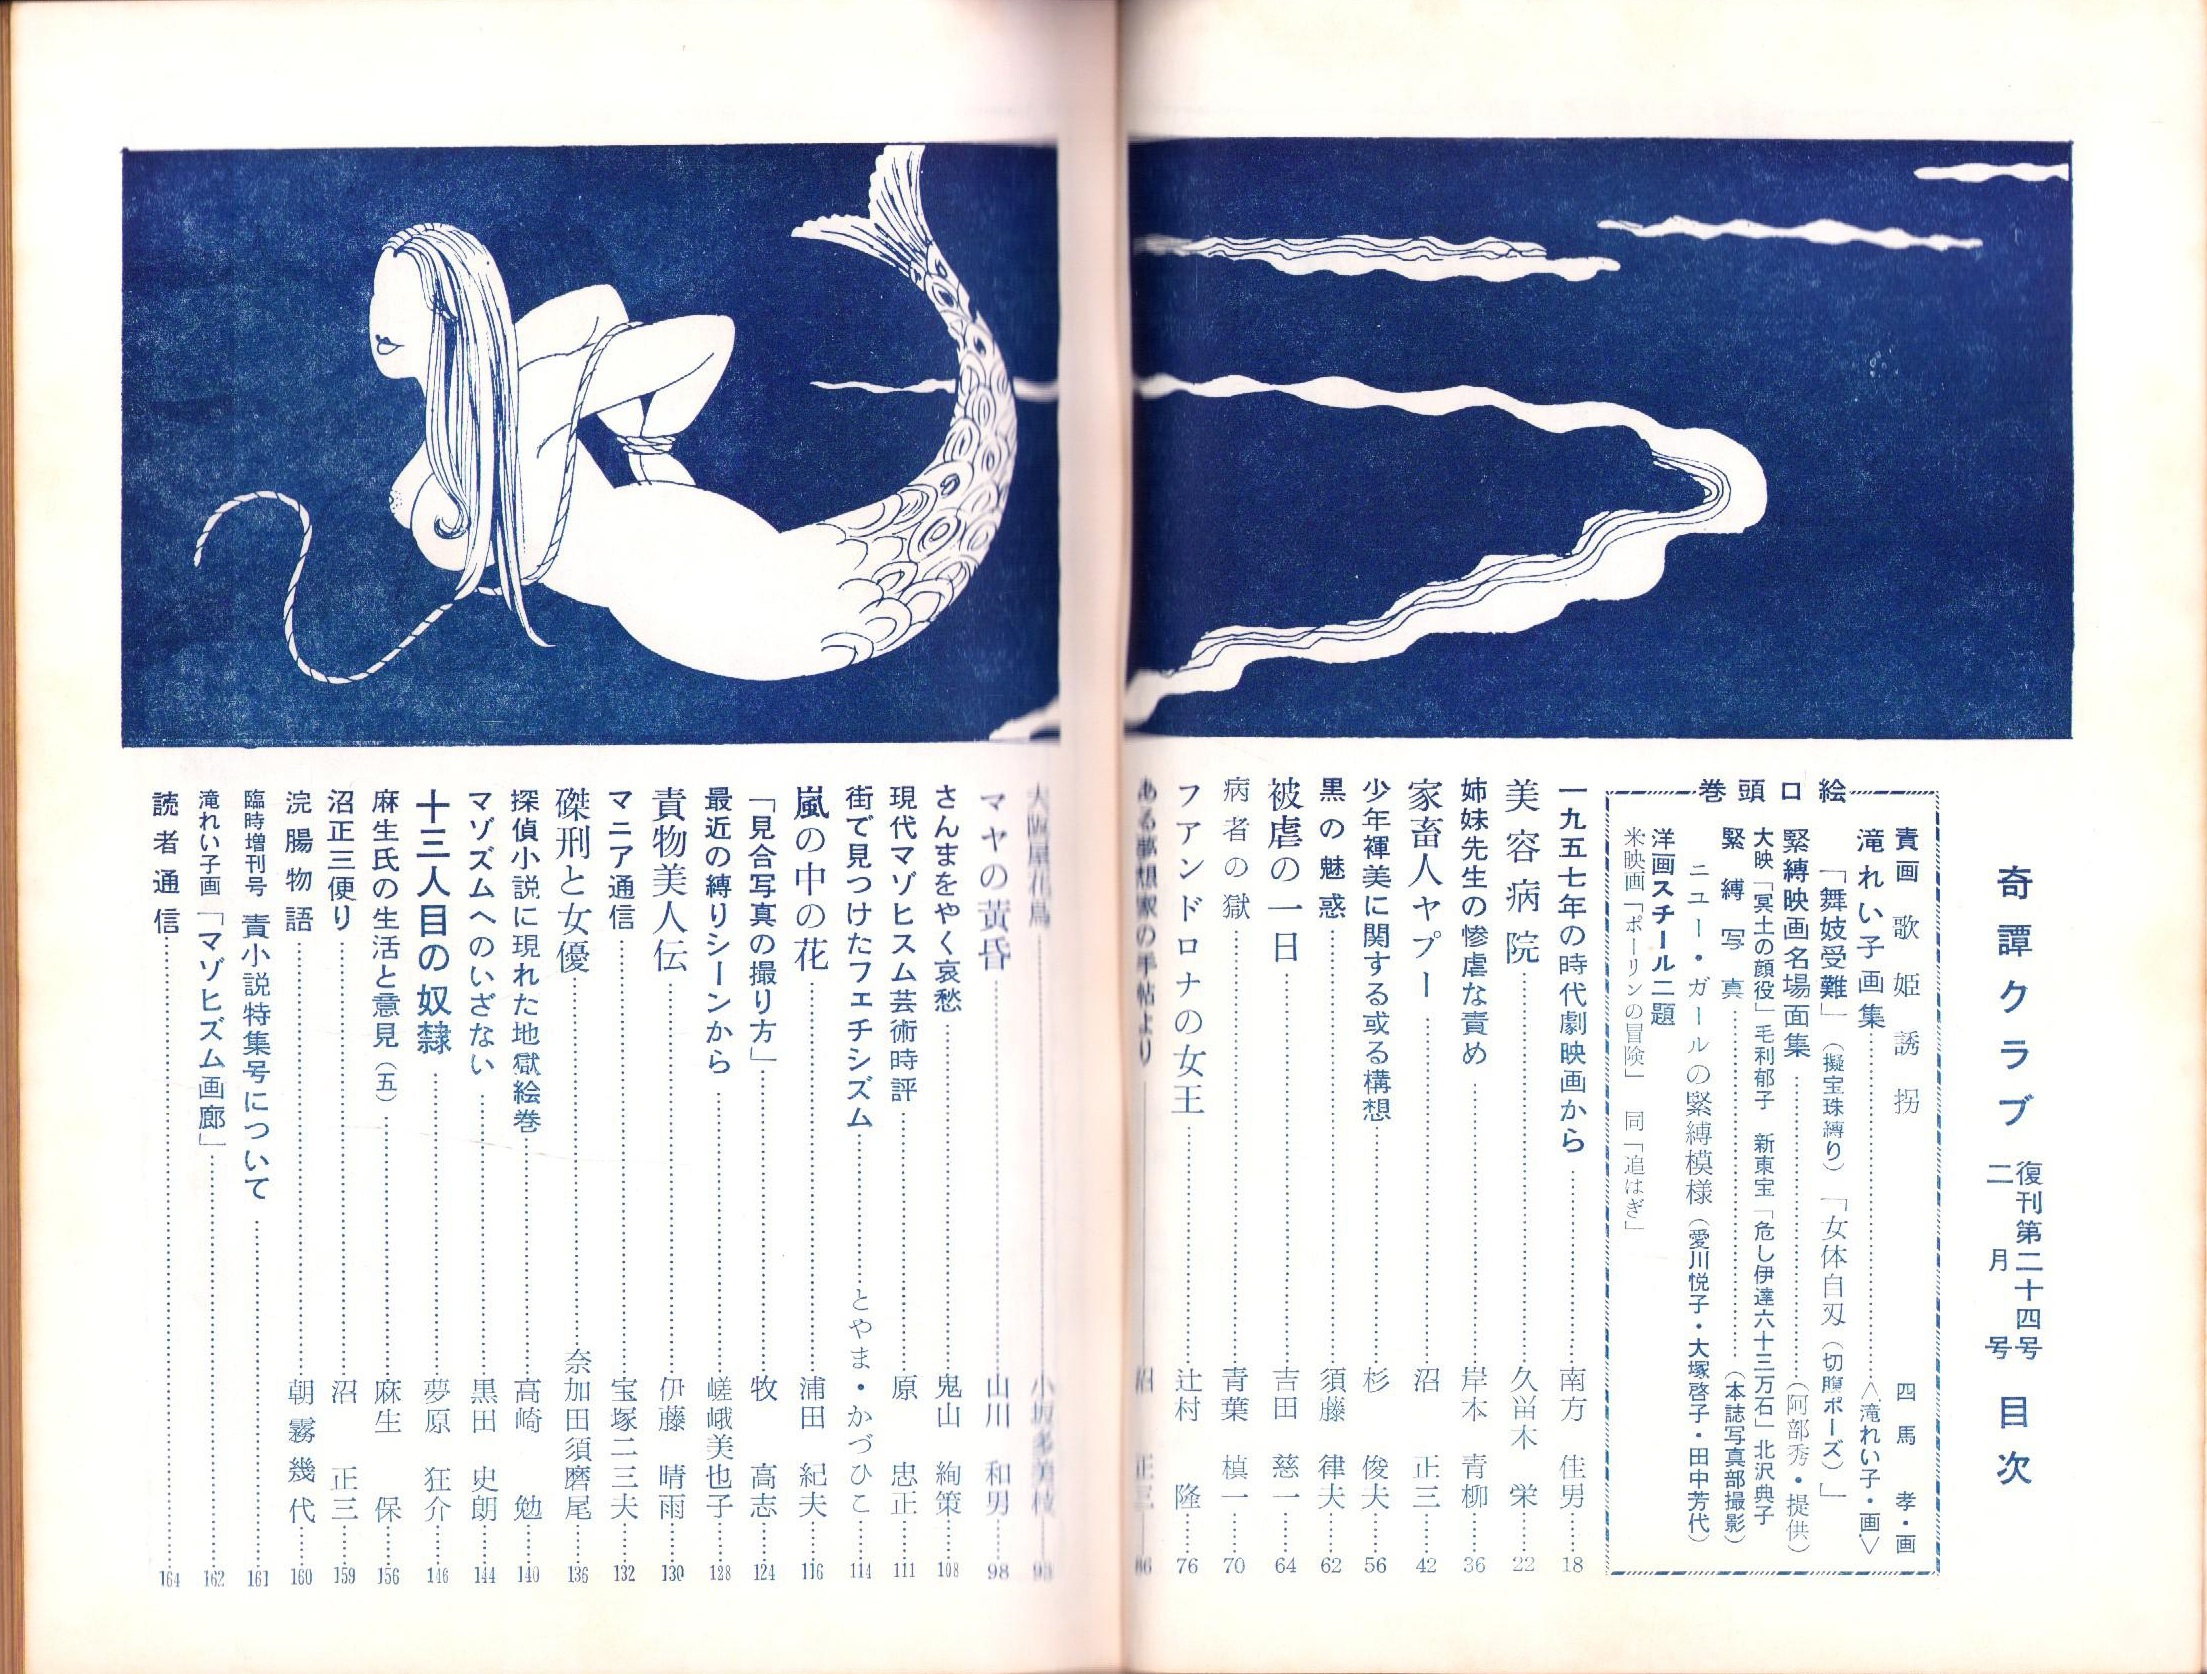 奇譚クラブ 復刊第二十四号 二月号 目次
絵口頭巻
責画 歌姫誘拐 四馬孝・画
滝れい子画集……〈滝れい子・画〉
「舞妓受難」(擬宝珠縛り)「女体自刃(切腹ポーズ)」
緊縛映画名場面集……(阿部秀・提供)
大映「冥土の顔役」毛利郁子 新東宝「危し伊達六十三万石」北沢典子
緊縛写真……(本誌写真部撮影)
ニュー・ガールの緊縛模様(愛川悦子・大塚啓子・田中芳代)
洋画スチール二題
米映画「ポーリンの冒険」 同「追はぎ」
一九五七年の時代劇映画から……南方佳男……18
美容病院……久留木栄……22
姉妹先生の惨虐な責め……岸本青柳……36
家畜人ヤプー……沼正三……42
少年褌美に関する或る構想……杉俊夫……56
黒の魅惑……須藤律夫……62
被虐の一日……吉田慈一……64
病者の獄……青葉楨一……70
フアンドロナの女王……辻村隆……76
ある夢想家の手帖より……沼正三……86
大阪屋花鳥……小坂多美枝……93
マヤの黄昏……山川和男……98
さんまをやく哀愁……鬼山絢策……108
現代マゾヒスム芸術時評……原忠正……111
街で見つけたフェチシズム……とやま・かづひこ……114
嵐の中の花……浦田紀夫……116
「見合写真の撮り方」……牧高志……124
最近の縛りシーンから……嵯峨美也子……128
責物美人伝……伊藤晴雨……130
マニア通信……宝塚二三夫……132
磔刑と女優……奈加田須磨尾……136
探偵小説に現れた地獄絵巻……高崎勉……140
マゾズムへのいざない……黒田史朗……144
十三人目の奴隷……夢原狂介……146
麻生氏の生活と意見(五)……麻生保……156
沼正三便り……沼正三……159
浣腸物語……朝霧幾代……160
臨時増刊号 責小説特集号について……161
滝れい子画「マゾヒズム画廊」……162
読者通信……164